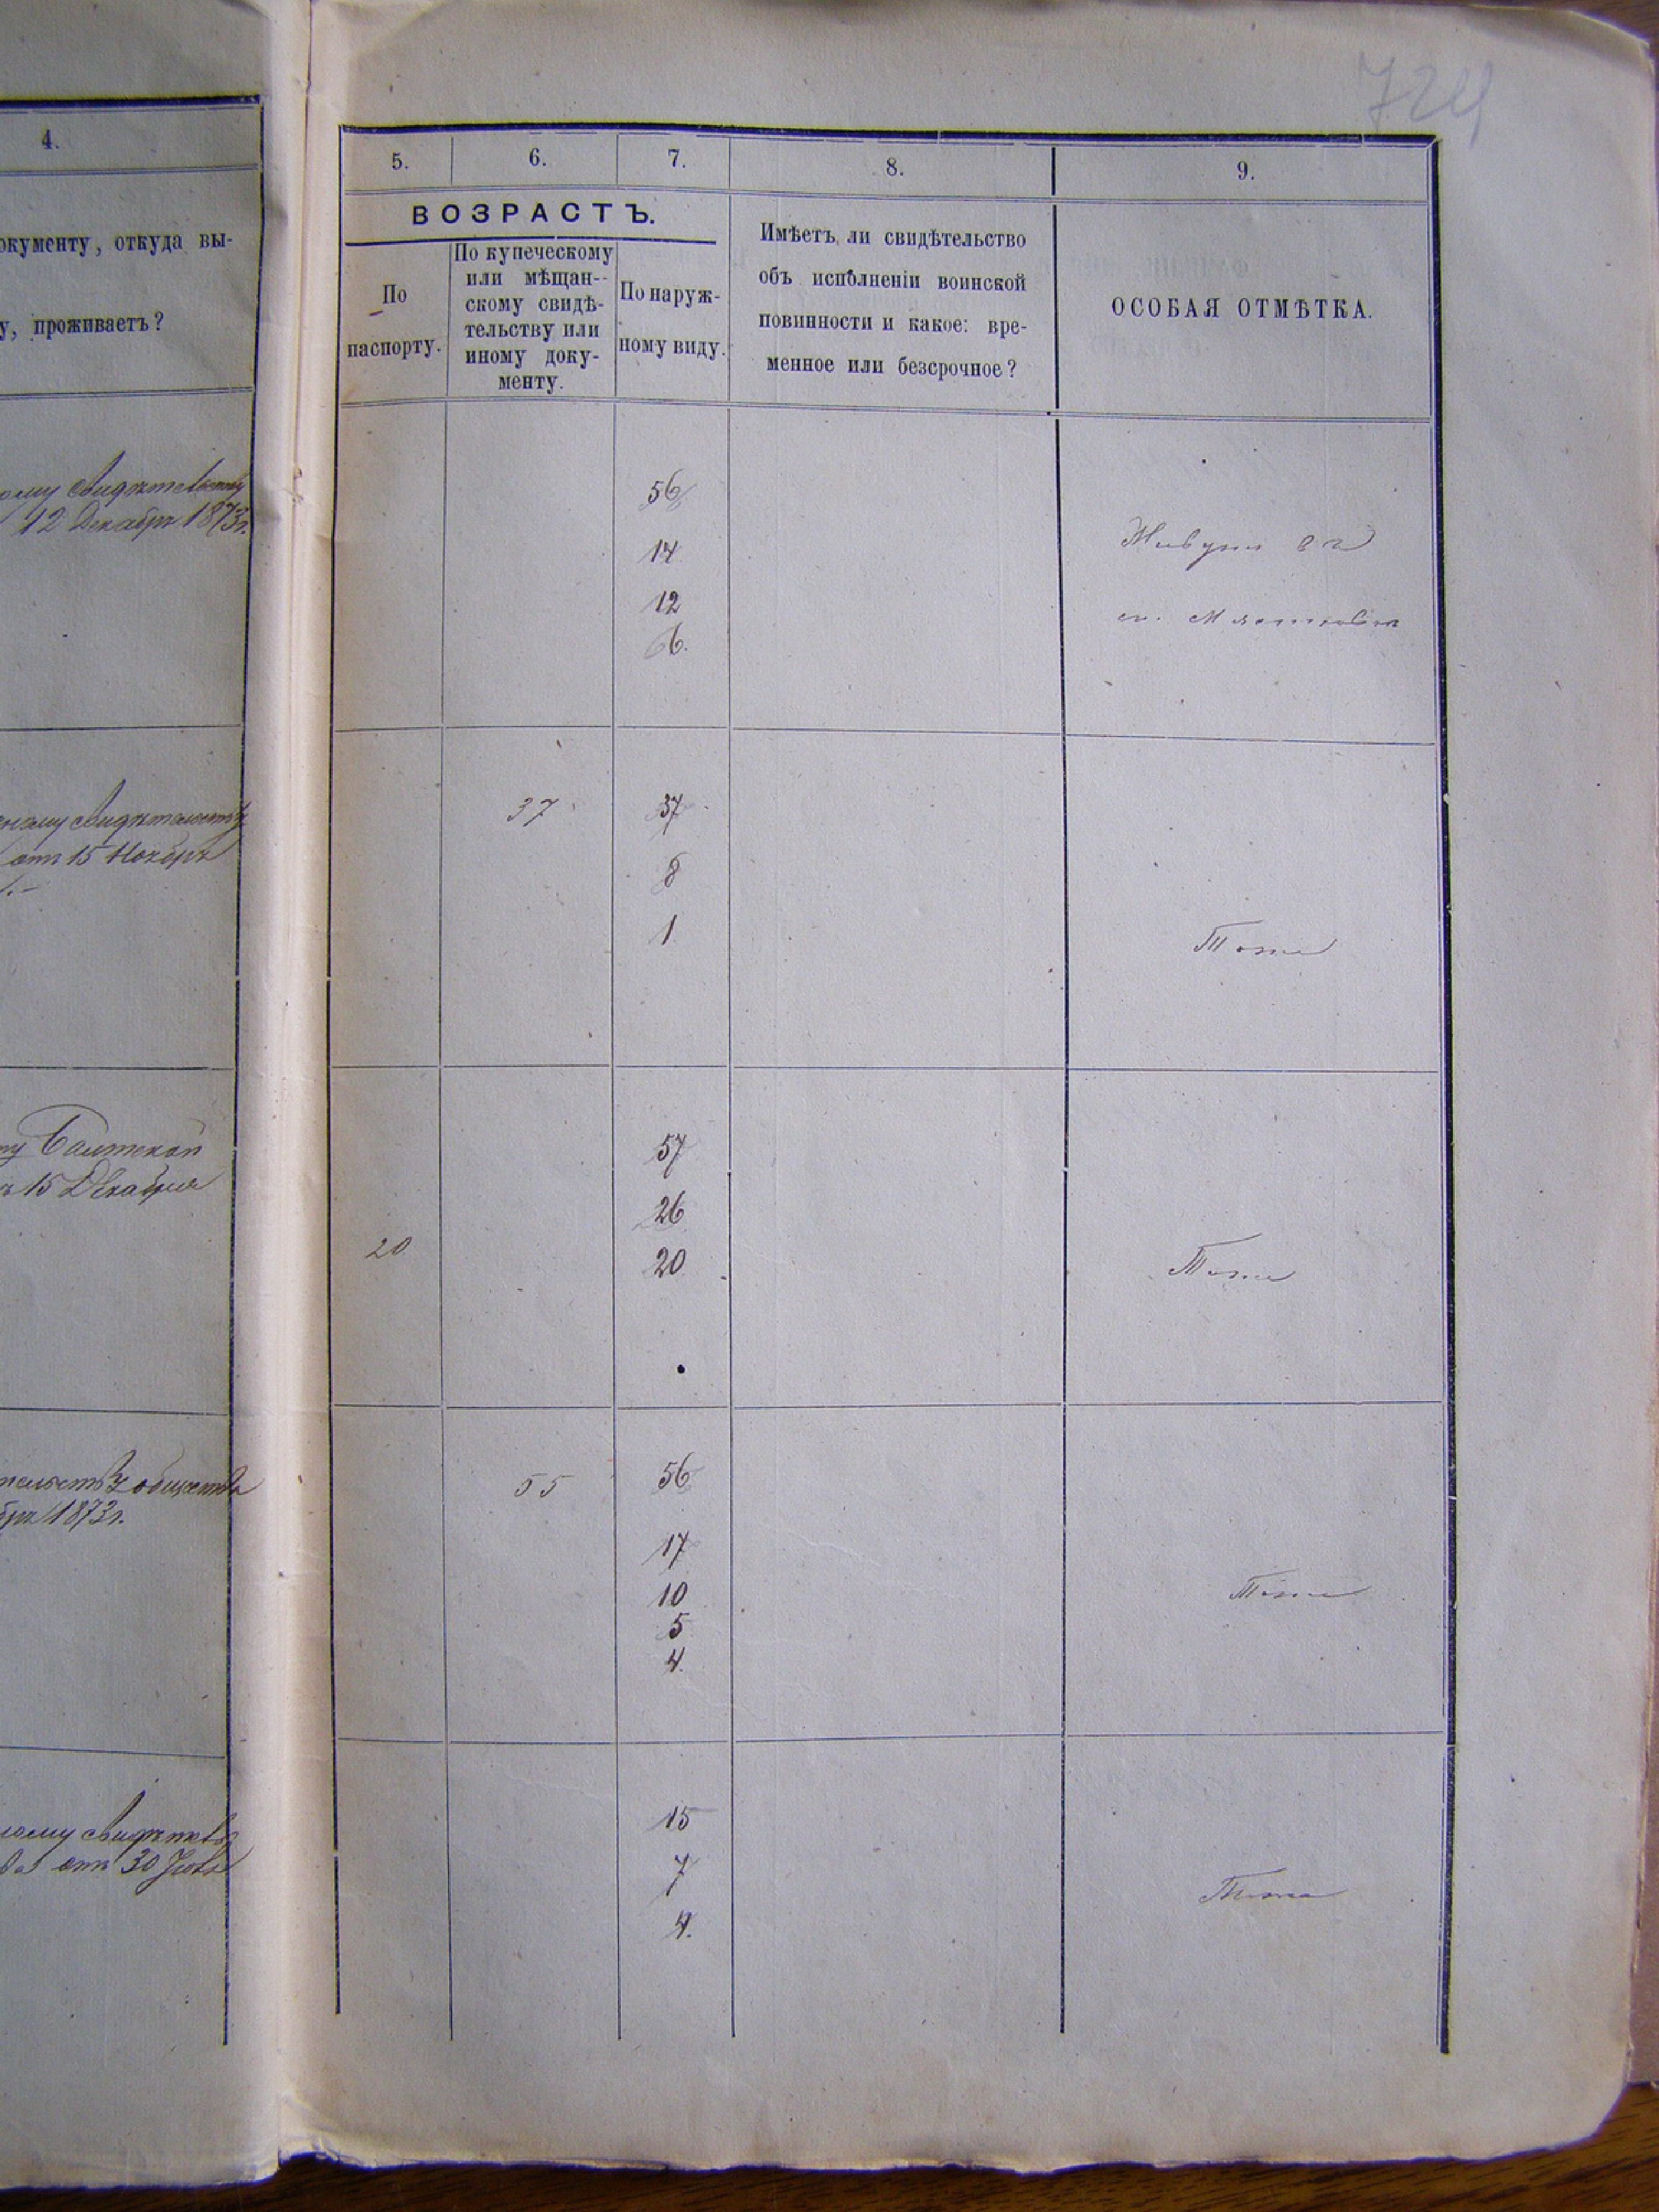 724
4.
окументу, откуда вы-
у, проживаетъ?
ому свидѣтельству
12 Декабрѣ 1873г.
ному свидѣтельству
отъ 15 Ноября
Балтской
15 Декабря
общества
1873г.
ому
отъ 30
5. 6. 7. 8. 9.
ВОЗРАСТЪ.
По
паспорту.
По купеческому
или мѣщан-
скому свидѣ-
тельству или
иному доку-
менту.
По наруж-
ному виду.
Имѣетъ ли свидѣтельство
объ исполненіи воинской
повинности и какое: вре-
менное или безсрочное?
ОСОБАЯ ОТМѢТКА.
56
14
12
6.
м. Мястковкѣ
37 37
8
1
Тоже
57
26
20 20
Тоже
55 56
17
10
5
4.
Тоже
15
7
4.
Тоже